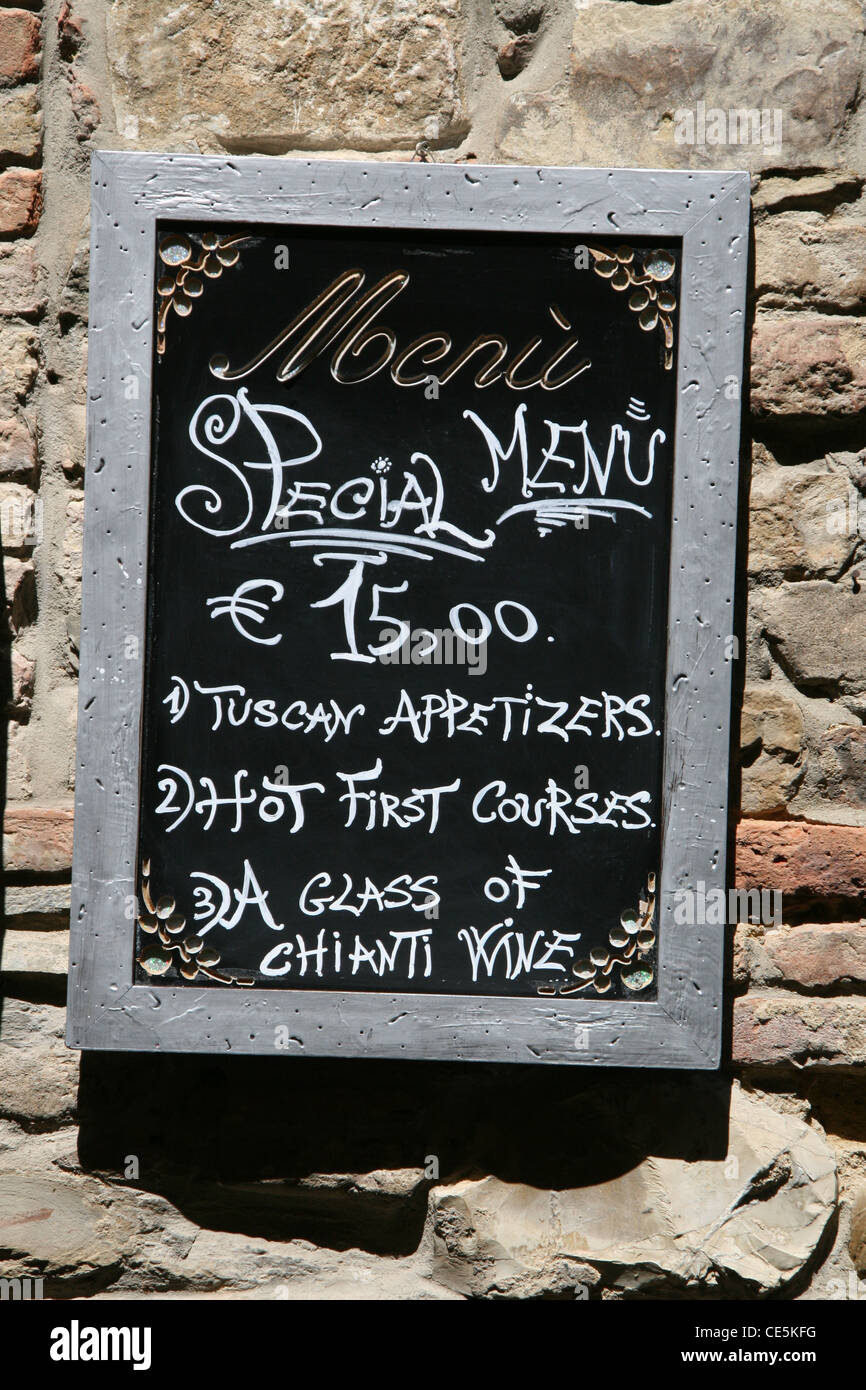 Menù
SPECIAL MENÙ
€ 15,00.
1) TUSCAN APPETIZERS.
2) HOT FIRST COURSES.
3) A GLASS OF
CHIANTI WINE
alamy
Image ID: CE5KFG
www.alamy.com